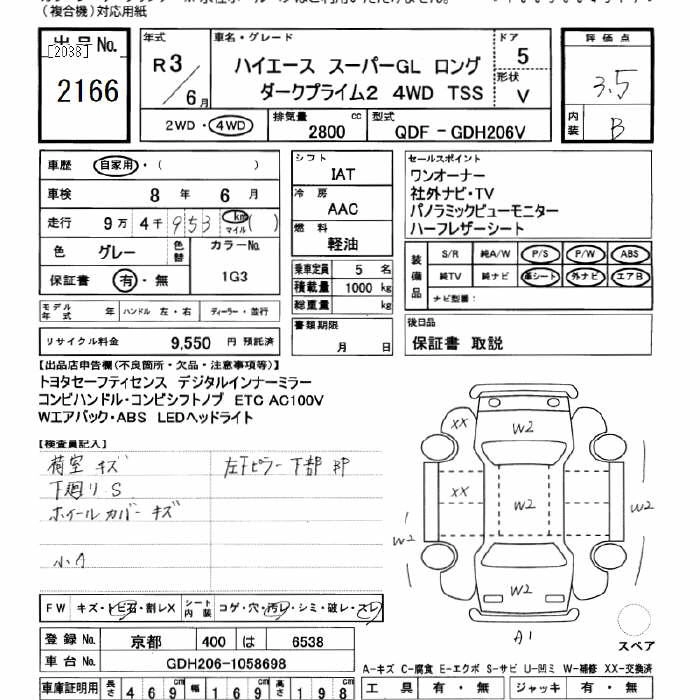 （複合機）対応用紙
出品No.
[2038]
2166
年式
R3/6月
車名・グレード
ハイエース スーパーGL ロング
ダークプライム2 4WD TSS
ドア
5
形状
V
評価点
3.5
内装
B
2WD・4WD
排気量
2800 cc
型式
QDF - GDH206V
車歴
自家用・( )
車検
8 年 6 月
走行
9万 4千 953 km マイル ( )
色
グレー
色替
カラーNo.
1G3
保証書
有・無
モデル年式 年
ハンドル 左・右
ディーラー・並行
リサイクル料金 9,550 円 預託済
シフト
IAT
冷房
AAC
燃料
軽油
乗車定員 5 名
積載量 1000 kg
総重量 kg
書類期限
月 日
セールスポイント
ワンオーナー
社外ナビ・TV
パノラミックビューモニター
ハーフレザーシート
装備品
S/R 純A/W P/S P/W ABS
純TV 純ナビ 革シート 外ナビ エアB
ナビ型番：
後日品
保証書 取説
【出品店申告欄(不良箇所・欠品・注意事項等)】
トヨタセーフティセンス デジタルインナーミラー
コンビハンドル・コンビシフトノブ ETC AC100V
Wエアバック・ABS LEDヘッドライト
【検査員記入】
荷室 キズ
下廻り S
ホイールカバー キズ
小A
左Fピラー下部 BP
XX
W2
XX
W2
W2
W2
W2
A1
スペア
FW キズ・トビ石・割レX
シート内装 コゲ・穴・汚レ・シミ・破レ・スレ
登録No. 京都 400 は 6538
車台No. GDH206-1058698
A-キズ C-腐食 E-エクボ S-サビ U-凹ミ W-補修 XX-交換済
車庫証明用 長さ 469 cm 幅 169 cm 高さ 198 cm
工具 有・無 ジャッキ 有・無